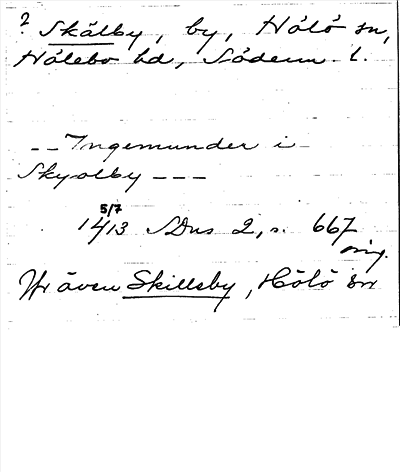 ? Skälby, by, Hölö sn,
Hölebo hd, Söderm. l.
-- Ingemunder i
Skyolby ---
5/7
1413 SDns 2, s. 667
orig.
Jfr även Skillsby, Hölö sn